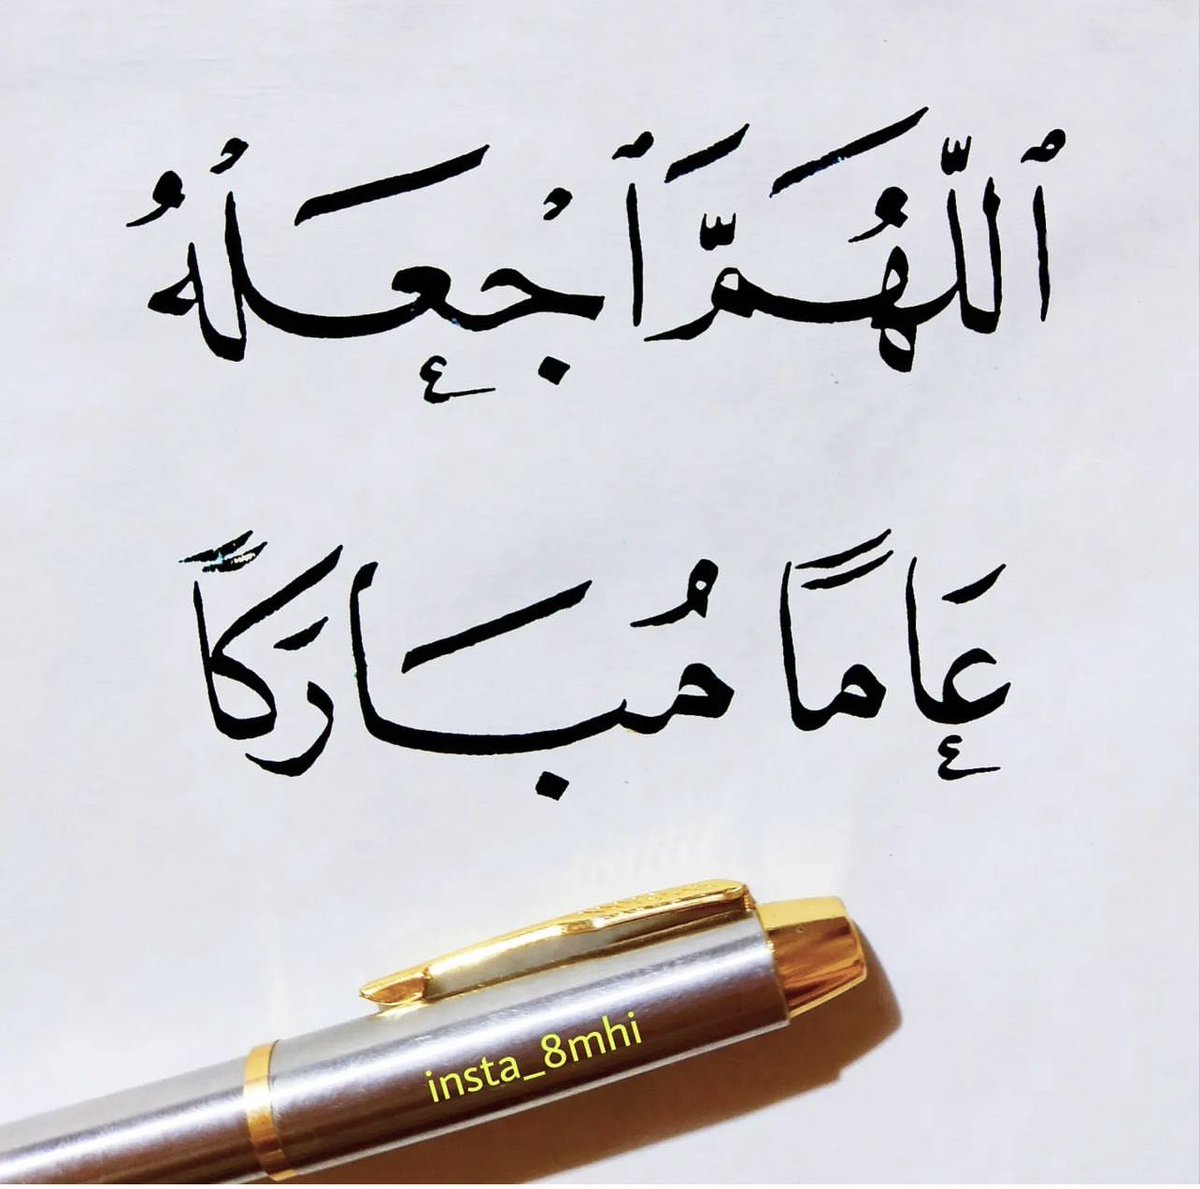 ٱللَّهُمَّ ٱجْعَلْهُ
عَامًا مُبَارَكًا
insta_8mhi